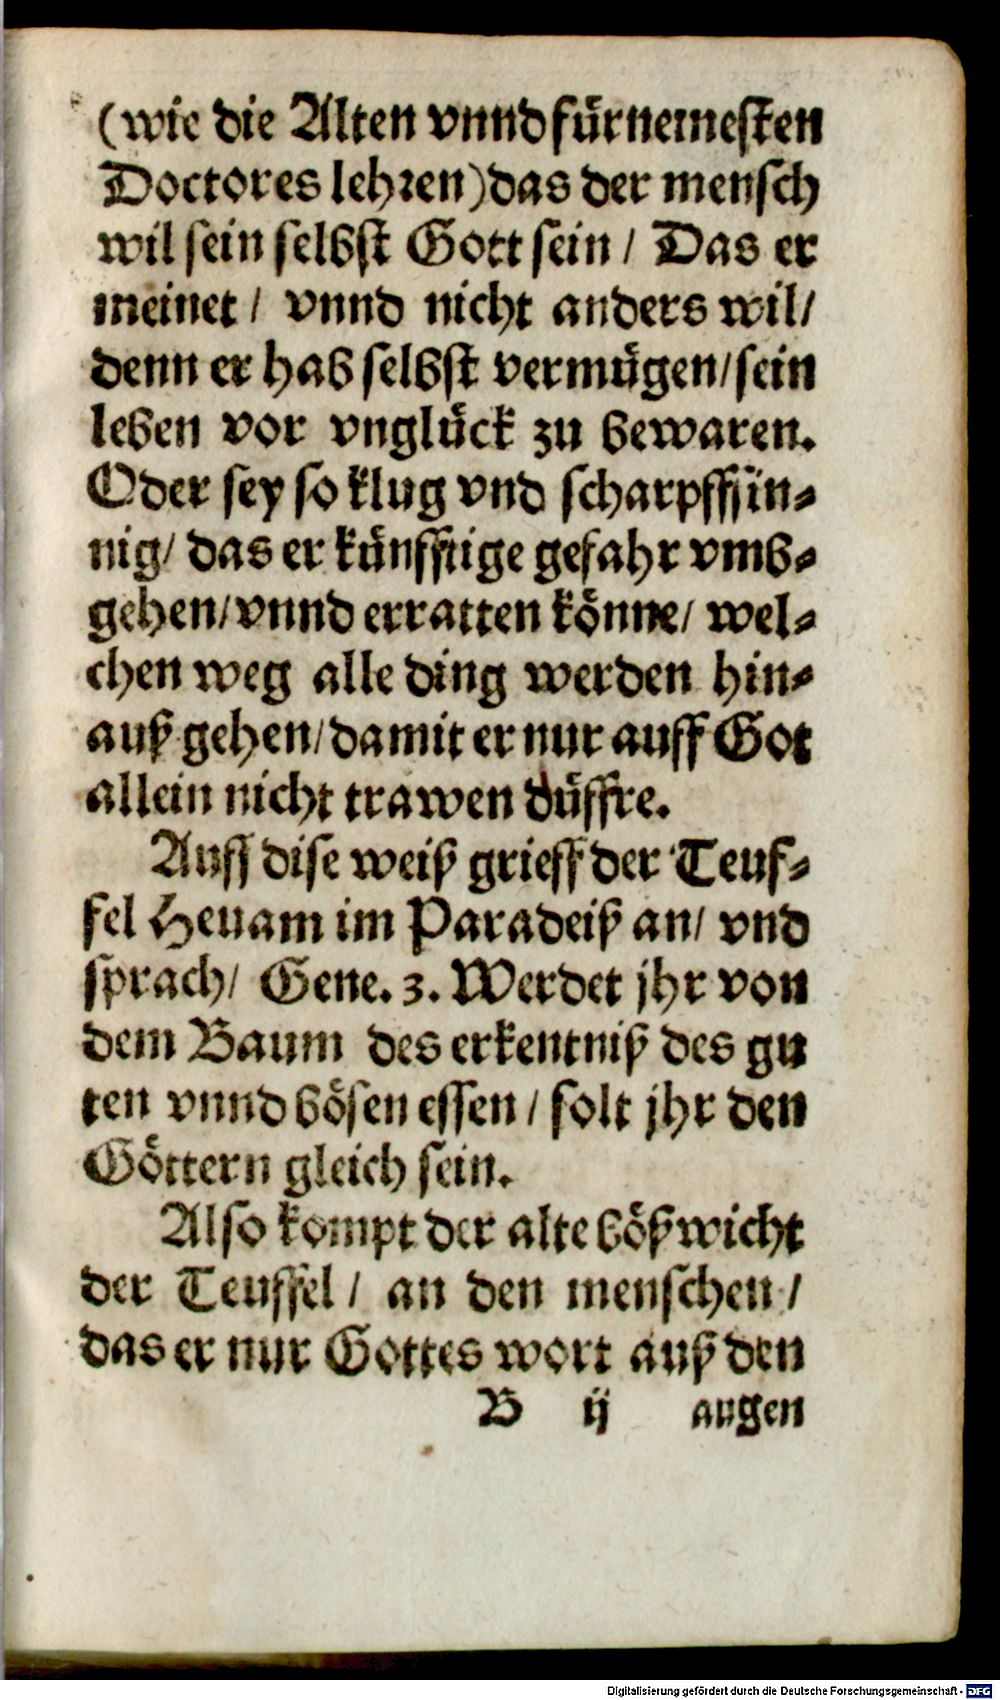 (wie die Alten vnnd fürnemesten
Doctores lehren) das der mensch
wil sein selbst Gott sein / Das er
meinet / vnnd nicht anders wil /
denn er hab selbst vermügen / sein
leben vor vnglück zu bewaren.
Oder sey so klug vnd scharpffsin-
nig / das er künfftige gefahr vmb-
gehen / vnnd erratten könne / wel-
chen weg alle ding werden hin-
auß gehen / damit er nur auff Got
allein nicht trawen düffte.
Auff dise weiß grieff der Teuf-
fel Heuam im Paradeiß an / vnd
sprach / Gene. 3. Werdet jhr von
dem Baum des erkentniß des gu
ten vnnd bösen essen / solt jhr den
Göttern gleich sein.
Also kompt der alte bößwicht
der Teuffel / an den menschen /
das er nur Gottes wort auß den
B ij augen
Digitalisierung gefördert durch die Deutsche Forschungsgemeinschaft - DFG